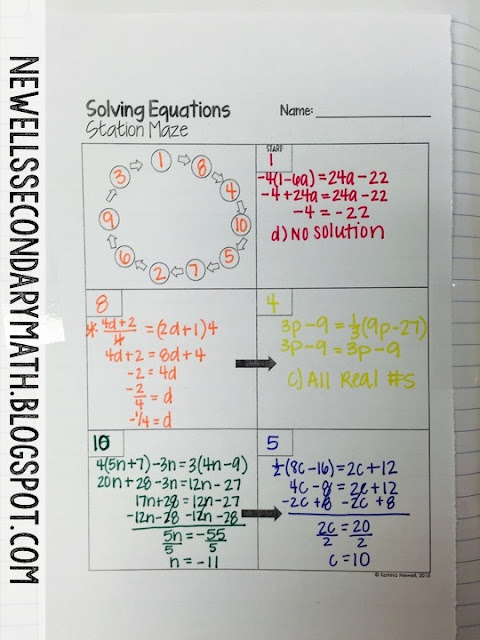 NEWELLSSECONDARYMATH.BLOGSPOT.COM
Solving Equations
Station Maze
Name:
1
8
4
10
5
7
2
6
9
3
START:
1
-4(1-6a)=24a-22
-4+24a=24a-22
-4=-22
d) No solution
8
4· (4d+2)/4 = (2d+1)4
4d+2=8d+4
-2=4d
-2/4=d
-1/4=d
4
3p-9=1/3(9p-27)
3p-9=3p-9
c) All Real #s
10
4(5n+7)-3n=3(4n-9)
20n+28-3n=12n-27
17n+28=12n-27
-12n-28 -12n-28
5n/5=-55/5
n=-11
5
1/2(8c-16)=2c+12
4c-8=2c+12
-2c+8 -2c +8
2c/2=20/2
c=10
© Katrina Newell, 2015